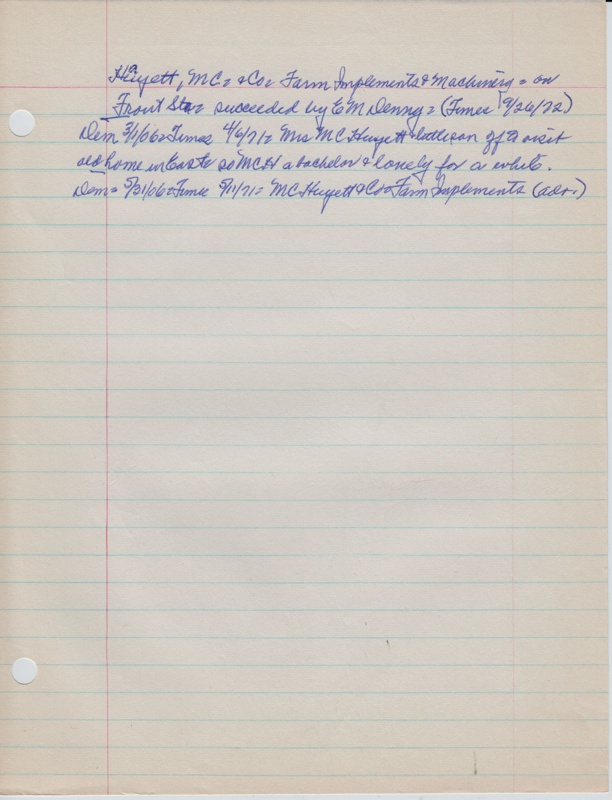 Huyett, MC= & Co= Farm Implements & Machinery = on
Front St= succeeded by E M Denny = (Times 9/26/72)
Dem 3/1/06=Times 4/6/71= Mrs MC Huyett & little son off to visit
old home in East= so MCH a bachelor & lonely for a while.
Dem= 5/31/06=Times 5/11/71= MC Huyett & Co= Farm Implements (adv.)